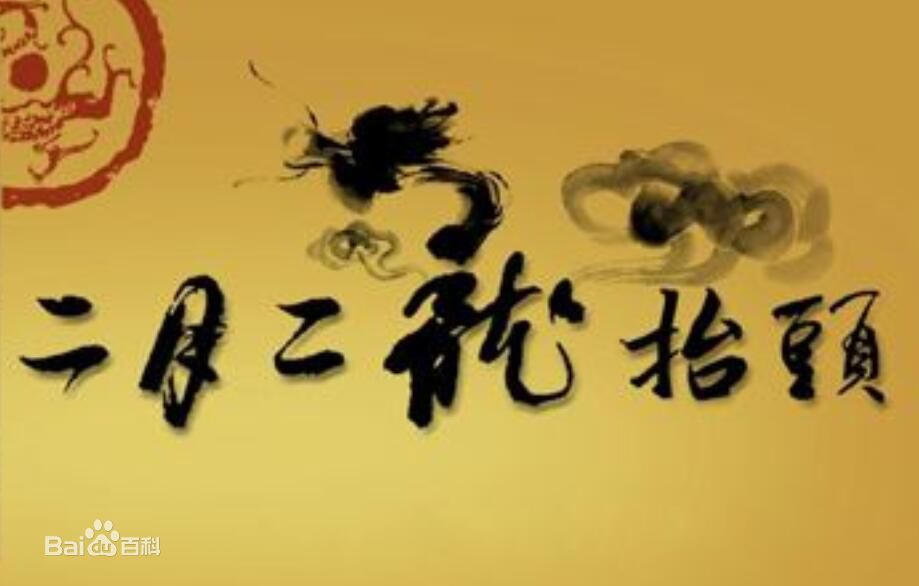 二月二龍抬頭
Baidu百科